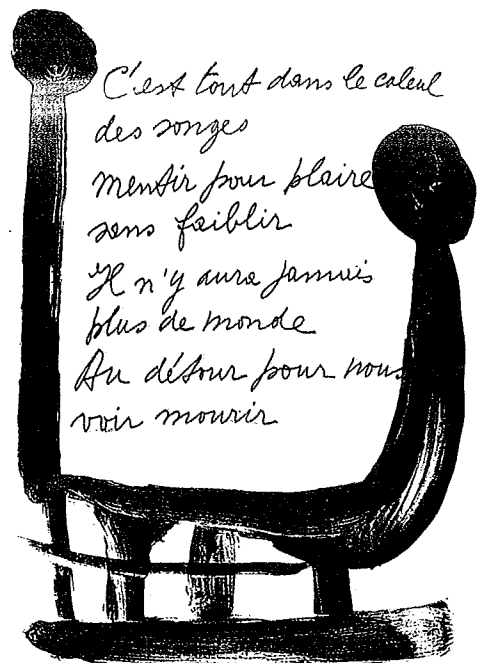 C'est tout dans le calcul
des songes
mentir pour plaire
sans faiblir
Il n'y aura jamais
plus de monde
Au détour pour nous
voir mourir